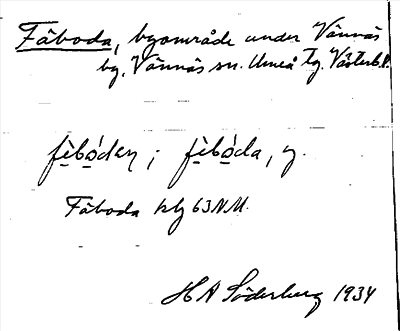 Fäboda, byområde under Vännäs
by, Vännäs sn. Umeå tg. Västerb.l.
fèbódan; fèbóda, y.
Fäboda kby 63 NV.
H A Söderberg 1934